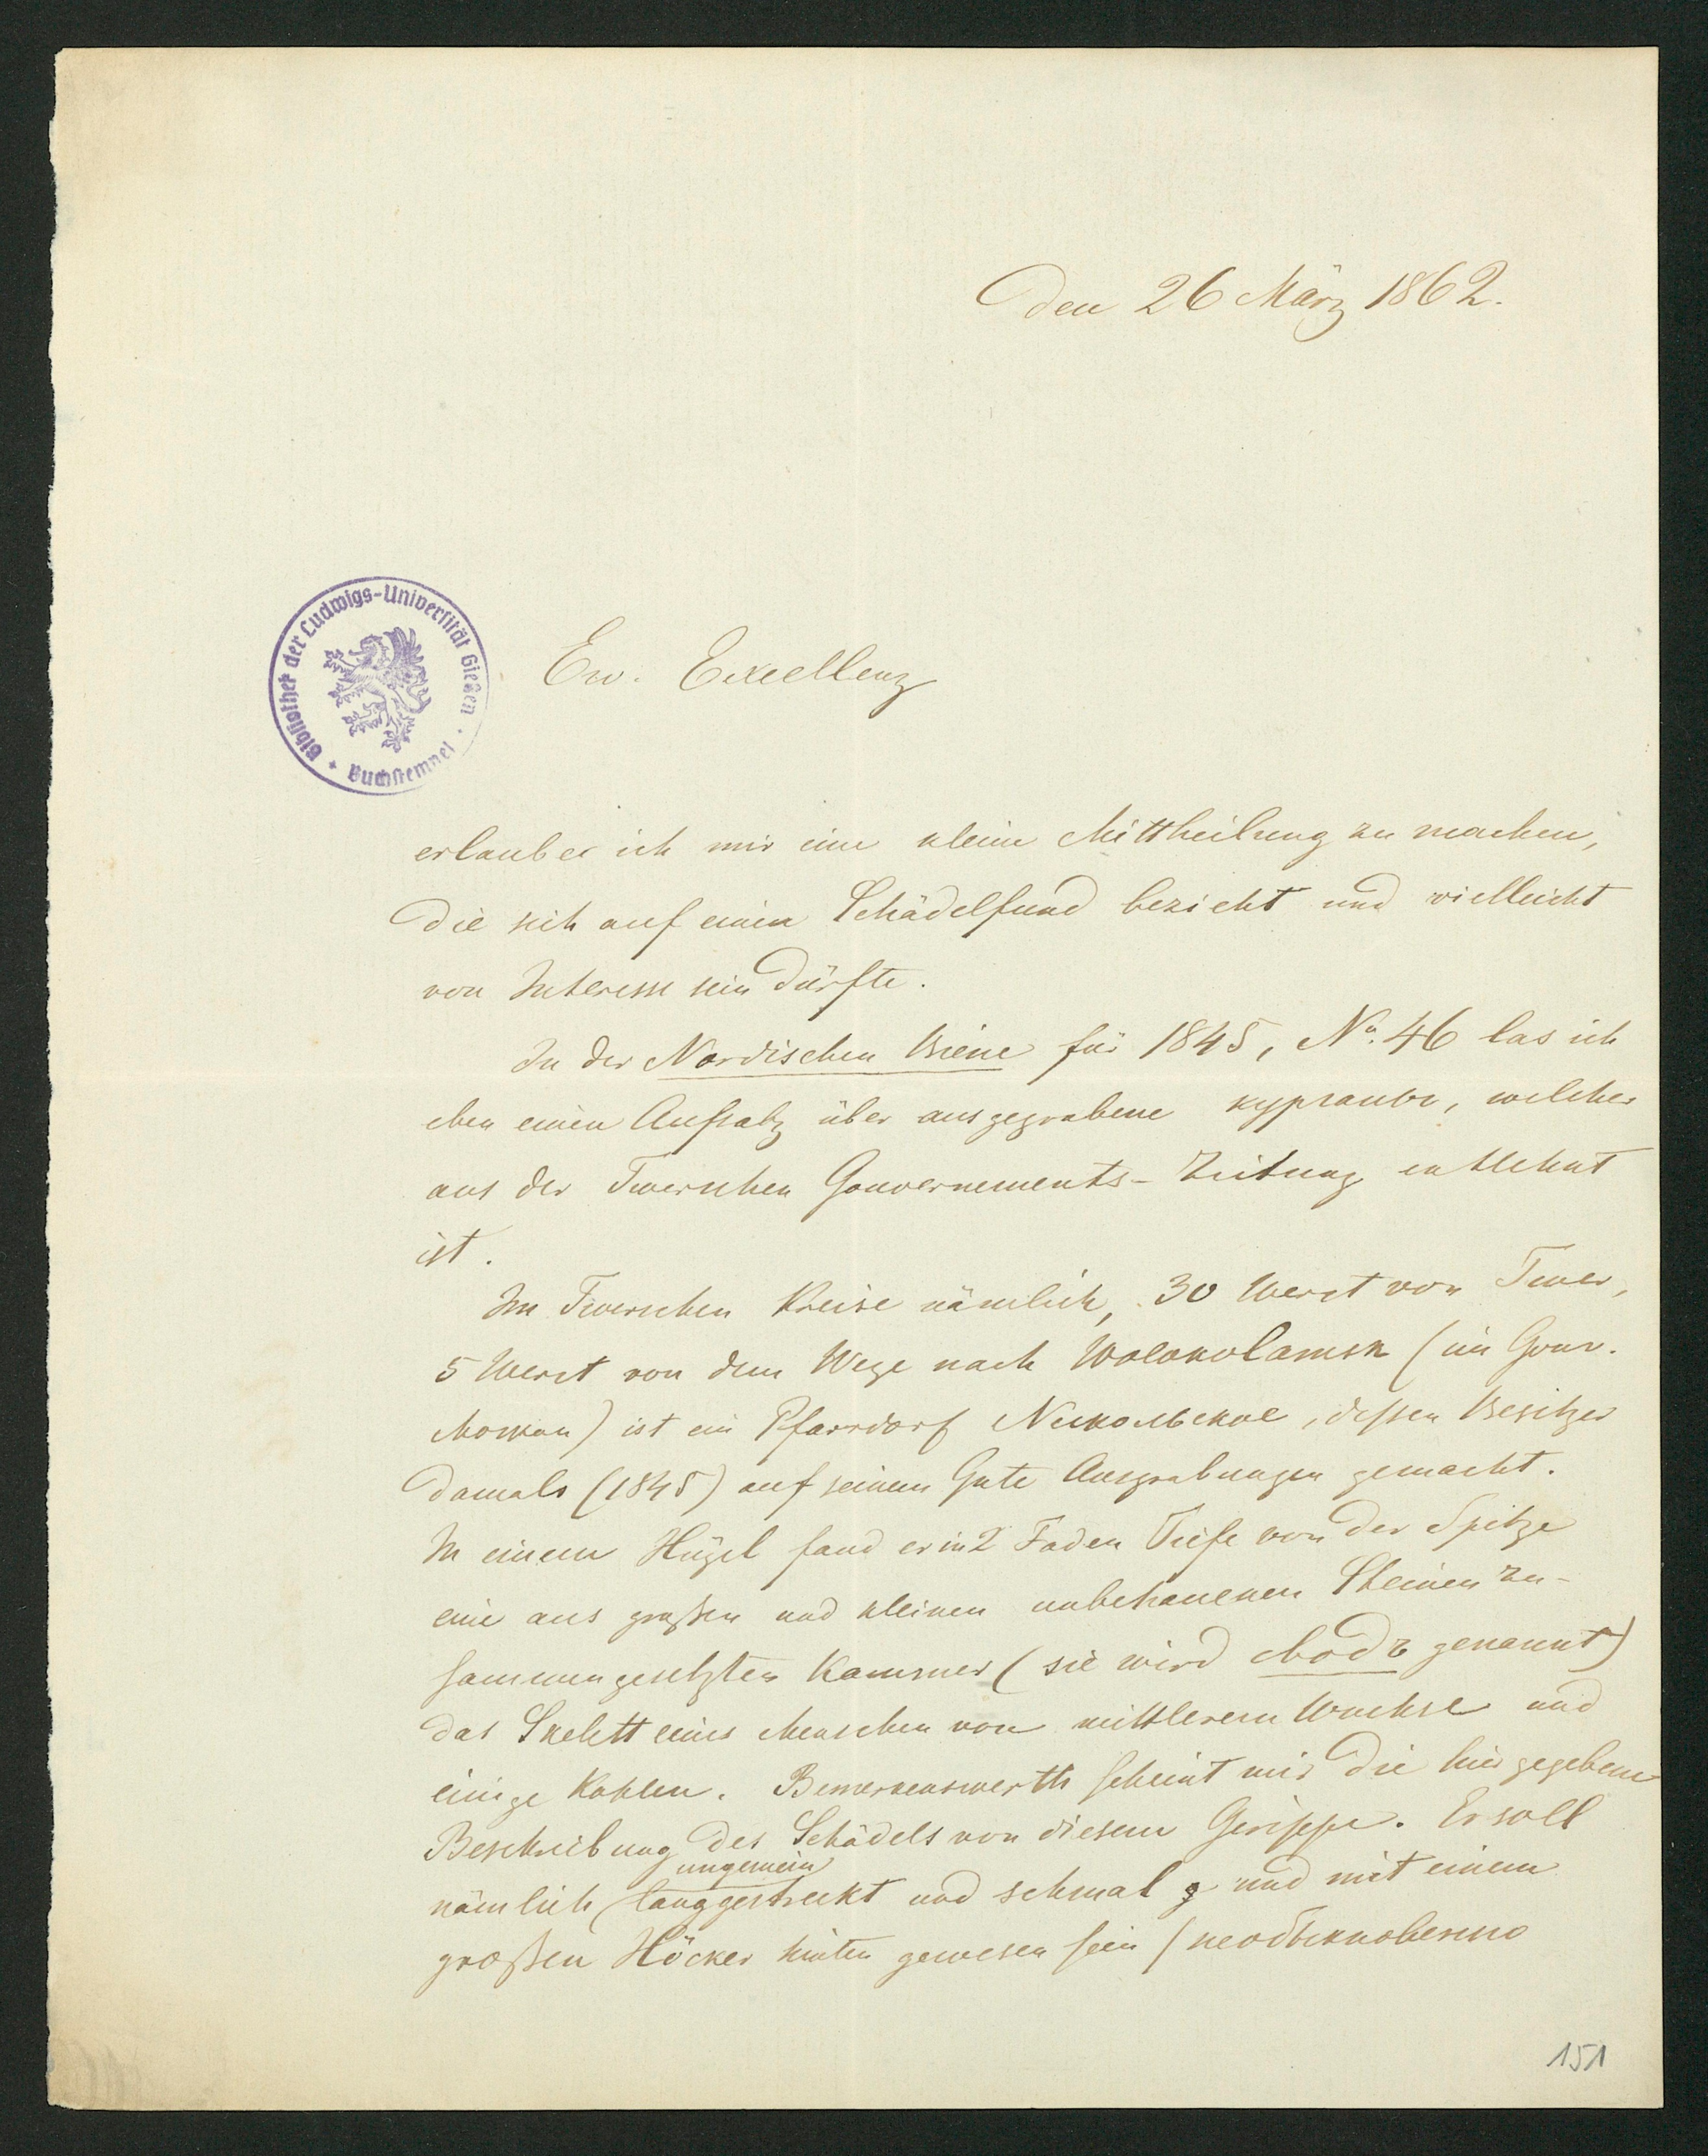 Den 26 März 1862.
Bibliothek der Ludwigs-Universität Gießen
Buchstempel
Ew. Excellenz
erlaube ich mir eine kleine Mittheilung zu machen,
die sich auf einen Schädelfund bezieht und vielleicht
von Interesse sein dürfte.
In der Nordischen Biene für 1845, No. 46 las ich
eben einen Aufsatz über ausgegrabene курганы, welcher
aus der Twerschen Gouvernements-Zeitung entlehnt
ist.
Im Twerschen Kreise nämlich, 30 Werst von Twer,
5 Werst von dem Wege nach Wolokolamsk (im Gouv.
Moskau) ist ein Pfarrdorf Никольское, dessen Besitzer
damals (1845) auf seinem Gute Ausgrabungen gemacht.
In einem Hügel fand er in 2 Faden Tiefe von der Spitze
eine aus großen und kleinen unbehauenen Steinen zu-
sammengesetzten Kammer (sie wird сводъ genannt)
das Skelett eines Menschen von mittlerem Wuchse und
einige Kohlen. Bemerkenswerth scheint mir die hier gegebene
Beschreibung des Schädels von diesem Gerippe. Er soll
nämlich ungemein langgestreckt und schmal und mit einem
großen Höcker hinten gewesen sein (необыкновенно
151